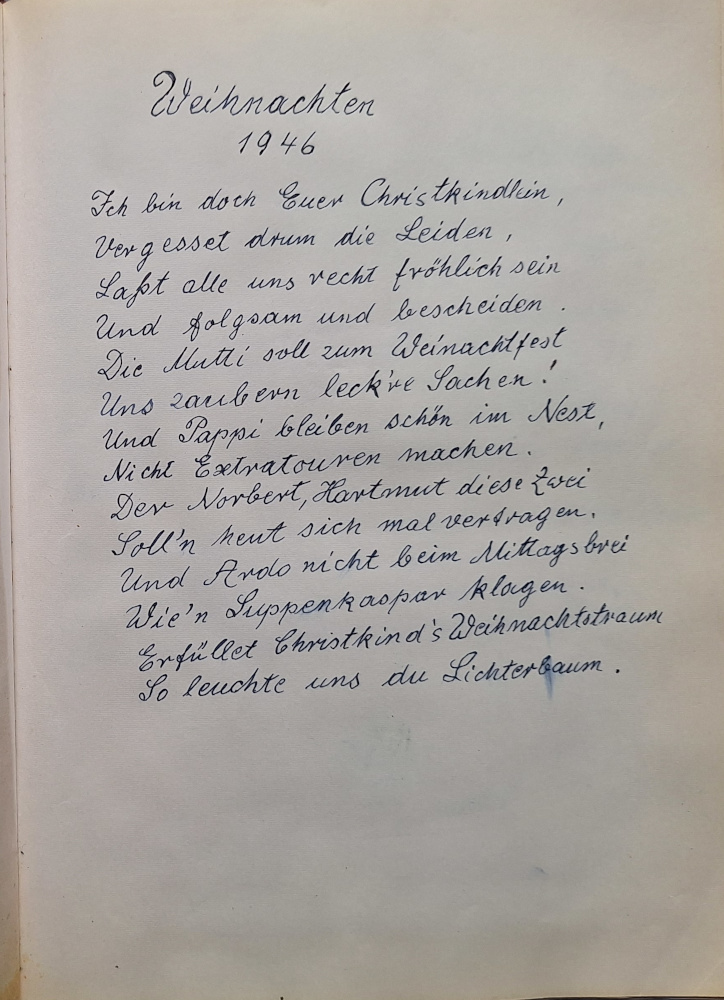 Weihnachten
1946
Ich bin doch Euer Christkindlein,
Vergesset drum die Leiden,
Laßt alle uns recht fröhlich sein
Und folgsam und bescheiden.
Die Mutti soll zum Weinachtfest
Uns zaubern leck're Sachen!
Und Pappi bleiben schön im Nest,
Nicht Extratouren machen.
Der Norbert, Hartmut diese Zwei
Soll'n heut sich mal vertragen.
Und Ardo nicht beim Mittagsbrei
Wie'n Suppenkaspar klagen.
Erfüllet Christkind's Weihnachtstraum
So leuchte uns du Lichterbaum.